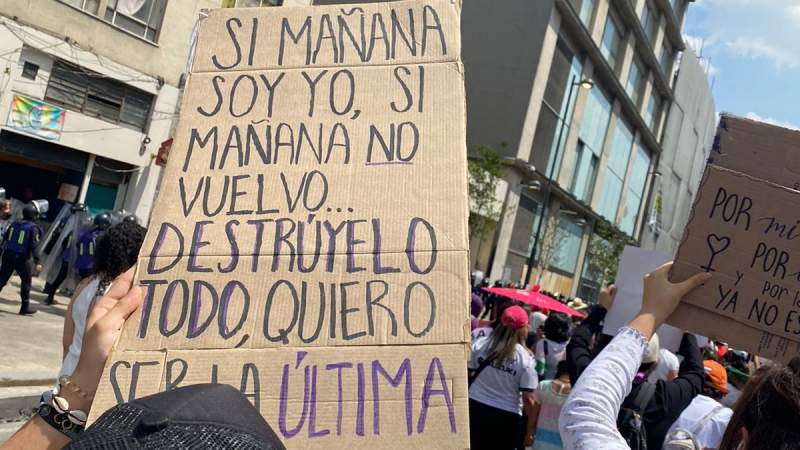 SI MAÑANA
SOY YO, SI
MAÑANA NO
VUELVO...
DESTRÚYELO
TODO, QUIERO
SER LA ÚLTIMA
POR mi
POR
Y POR
YA NO ES